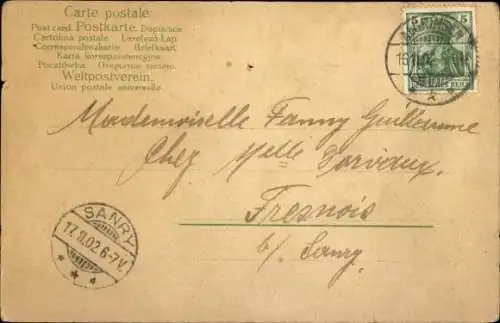 Carte postale
Post card Postkarte. Dopisnice
Cartolina postale Levelező-Lap.
Correspondenzkarte Briefkaart.
Karta korespondencyjna
Weltpostverein.
Union postale universelle
5 5
Mademoiselle Fanny Guillaume
Chez Melle
Fresnois
b/ Sanry
SANRY
17.11.02.6-7V.